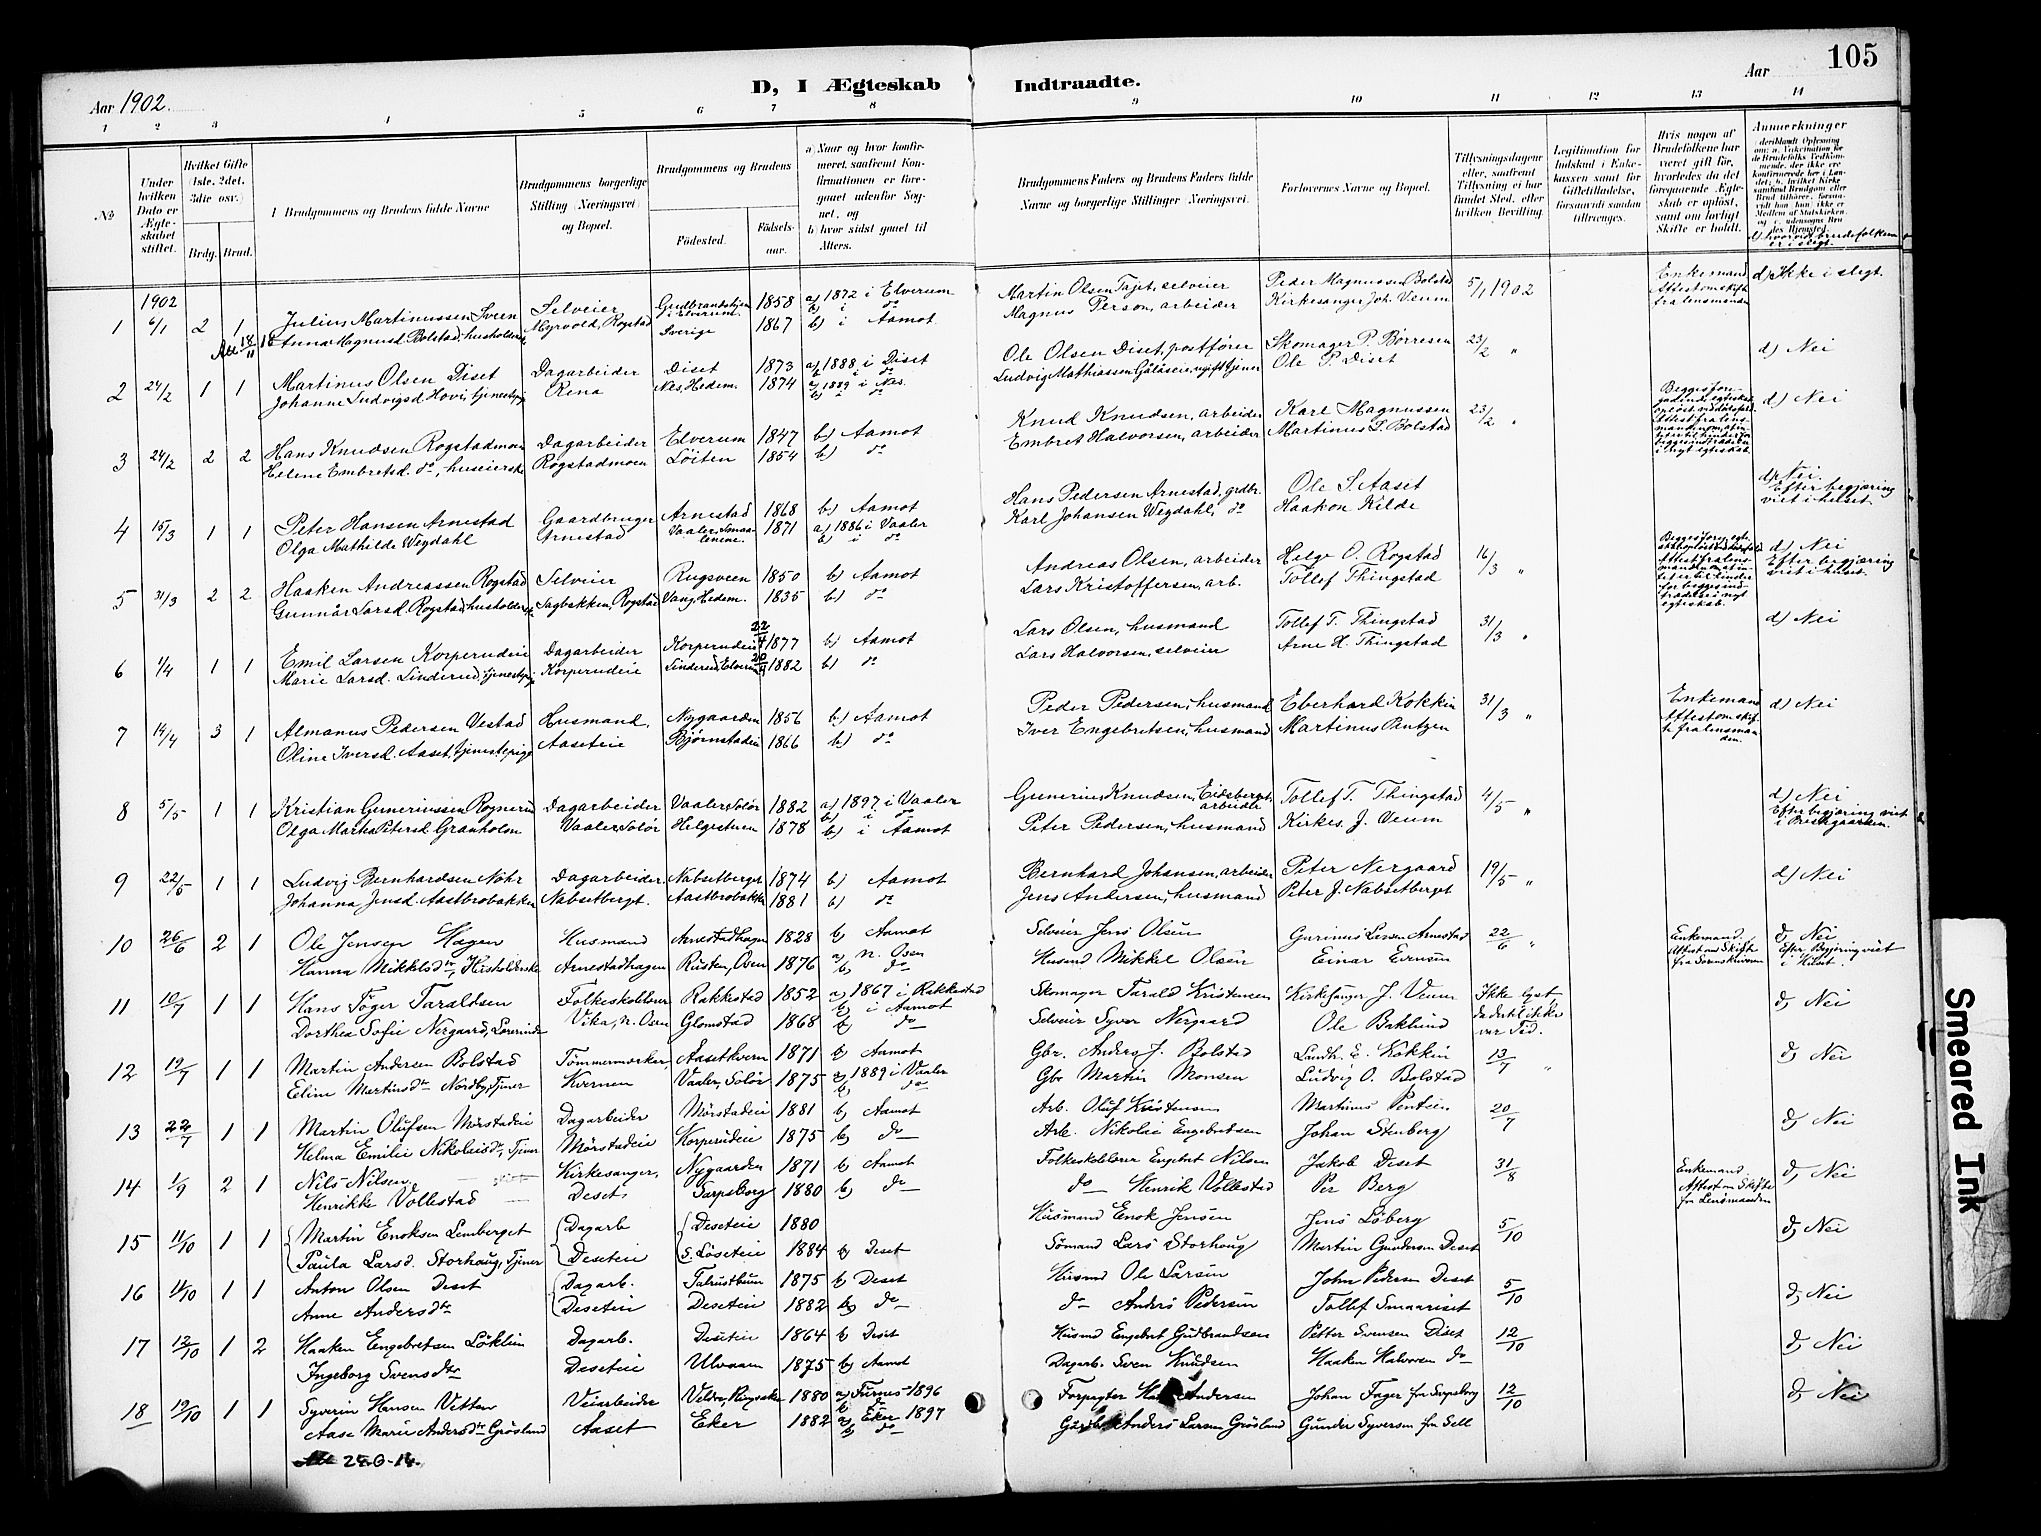 105
D, I Ægteskab Indtraadte.
Aar 1902.
Aar
1 2 3 4 5 6 7 8 9 10 11 12 13 14
No
Under hvilken Dato er Ægteskabet stiftet.
Hvilket Gifte (1ste, 2det, 3die osv.)
Brdg. Brud.
Brudgommens og Brudens fulde Navne
Brudgommens borgerlige Stilling (Næringsvei) og Bopæl.
Brudgommens og Brudens
Fødested.
Fødselsaar.
a) Naar og hvor konfirmeret, saafremt Konfirmationen er foregaaet udenfor Sognet, og
b) hvor sidst gaaet til Alters.
Brudgommens Faders og Brudens Faders fulde Navne og borgerlige Stillinger (Næringsvei).
Forlovernes Navne og Bopæl.
Tillysningsdagene eller, saafremt Tillysning ei har fundet Sted, efter hvilken Bevilling.
Legitimation for Indskud i Enkekassen samt for Giftetilladelse, forsaavidt saadan tiltrænges.
Hvis nogen af Brudefolkene har været gift før, hvorledes da det foregaaende Ægteskab er opløst, samt om lovligt Skifte er holdt.
Anmerkninger
d) hvorvidt brudefolkene er i slegt.
1902
1 6/1 2 1 Julius Martinussen Sveen Selveier Gudbrandstjen i Elverum 1858 a) 1872 i Elverum Martin Olsen Tajet, selveier Peder Magnussen Bolstad 5/1 1902 Enkemand d) Ikke i slegt.
Anna Magnusd. Bolstad, husholderske Myrvold, Rogstad Sverige 1867 b) i Aamot Magnus Person, arbeider Kirkesanger Joh. Veum Attest om skifte fra lensmanden
2 24/2 1 1 Martinus Olsen Diset Dagarbeider Diset 1873 a) 1888 i Diset Ole Olsen Diset, postfører Skomager P. Børresen 23/2 " d) Nei
Johanne Ludvigsd. Hovi, tjenestepige Rena Nes, Hedem. 1874 a) 1889 i Nes. Ludvig Mathiassen Gålåseie, ugift tjener Ole P. Diset
3 24/2 2 2 Hans Knudsen Rogstadmoen Dagarbeider Elverum 1847 b) Aamot Knud Knudsen, arbeider Karl Magnussen 23/2 " d) Nei
Helene Embretsd. do, huseierske Rogstadmoen Löiten 1854 b) do Embret Halvorsen, arbeider Martinus P. Bolstad
4 15/3 1 1 Peter Hansen Arnestad Gaardbruger Arnestad 1868 b) Aamot Hans Pedersen Arnestad, grdbr. Ole S. Aaset d) Nei. Efter begjæring viet i huset.
Olga Mathilde Wegdahl Arnestad Vaaler, Smaalenene. 1871 a) 1886 i Vaaler b) i do Karl Johansen Wegdahl, do Haakon Kilde
5 31/3 2 2 Haaken Andreassen Rogstad Selveier Rugsveen 1850 b) Aamot Andreas Olsen, arbeider Helge O. Rogstad 16/3 " d) Nei Efter begjæring viet i huset.
Gunnår Larsd. Rogstad, husholderske Sagbakken, Rogstad Vang, Hedem. 1835 b) do Lars Kristoffersen, arb. Tollef Thingstad
6 1/4 1 1 Emil Larsen Korperudeie Dagarbeider Korperudeie 22/4 1877 b) Aamot Lars Olsen, husmand Tollef T. Thingstad 31/3 " d) Nei
Marie Larsd. Linderud, tjenestepige Korperudeie Linderud, Elverum 1882 b) do Lars Halvorsen, selveier Arne H. Thingstad
7 14/4 3 1 Almanus Pedersen Vestad Husmand, Nygaarden 1856 b) Aamot Peder Pedersen, husmand Eberhard Kokkin 31/3 " Enkemand d) Nei
Oline Iversd. Aaset, tjenestepige Aaseteie Bjørnstadeie 1866 b) do Iver Engebretsen, husmand Martinus Pentzen Attest om skifte fra lensmanden.
8 5/5 1 1 Kristian Gunneriussen Rognerud Dagarbeider Vaaler, Solør 1882 a) 1897 i Vaaler Gunerius Knudsen, Eidsberget, arbeider Tollef T. Thingstad 4/5 " d) Nei Efter begjæring viet i Prestegaarden.
Olga Marka Petersd. Granholm Vaaler, Solør Helgestuen 1878 b) i Aamot Peter Pedersen, husmand Kirkes. J. Veum
9 22/5 1 1 Ludvig Bernhardsen Nohr Dagarbeider. Nabsetberget 1874 b) Aamot Bernhard Johansen, arbeider Peter Nergaard 19/5 " d) Nei
Johanna Jensd. Aastbrobakken Nabsetbergt. Aastbrobakken 1881 b) do Jens Andersen, husmand Peter J. Nabsetberget
10 26/6 2 1 Ole Jensen Hagen Husmand Arnestadhagen 1828 b) Aamot Selveier Jens Olsen Gurinus Larsen Arnestad 22/6 " Enkemand. d, Nei
Hanna Mikkelsdtr, Husholderske Arnestadhagen Rusten, Osen 1876 a) N. Osen b) do Husmd Mikkel Olsen Einar Evensen Attest om Skifte fra Sorenskriveren Efter Begjæring viet i Huset.
11 10/7 1 1 Hans Tøger Taraldsen Folkeskolelærer Rakkestad 1852 a) 1867 i Rakkestad b) i Aamot Skomager Tarald Kristensen Kirkesanger J. Veum Ikke lyst, da dertil ikke var Tid. d, Nei
Dorthea Sofie Nergaard, Lærerinde Vika, N. Osen Glomstad 1868 b) do Selveier Syver Nergaard Ole Baklund
12 19/7 1 1 Martin Andersen Bolstad Tømmermerker, Aasetkvern 1871 b) Aamot Gbr. Anders J. Bolstad Landh. E. Kokkin 13/7 " d, Nei
Eline Martinsdtr Nordby, Tjener Kvernen Vaaler, Solør 1875 a) 1889 i Vaaler b) do Gbr Martin Monsen Ludvig O. Bolstad
13 22/7 1 1 Martin Olufsen Mörstadeie Dagarbeider Mörstadeie 1881 b) Aamot Arb. Oluf Kristensen Martinus Pentzen 20/7 d, Nei
Helma Emilie Nikolaisdr, Tjener Mörstadeie Korperudeie 1875 b) do Arb. Nikolai Engebretsen Johan Stenberg
14 1/9 2 1 Nils Nilsen Kirkesanger, Nygaarden 1871 b) Aamot Folkeskolelærer Engebret Nilsen Jakob Deset 31/8 Enkemand. d, Nei
Henrikke Vollestad Deset, Sarpsborg 1880 b) do do Henrik Vollestad Per Berg Attest om Skifte fra Lensmanden
15 11/10 1 1 Martin Enoksen Lemberget Dagarb Deseteie 1880 Husmand Enok Jensen Jens Løberg 5/10 d, Nei
Paula Larsd. Storhaug, Tjener Deseteie S. Løseteie 1884 b) Deset Sømand Lars Storhaug Martin Gundersen Deset
16 11/10 1 1 Anton Olsen Deset Dagarb. Talrustbuen 1875 b) Deset Husmd Ole Larsen John Pedersen Deset 5/10 d, Nei
Anne Andersdtr Deseteie Deseteie 1882 b) do do Anders Pedersen Tollef Smaariset
17 12/10 1 2 Haaken Engebretsen Løklien Dagarb. Deseteie 1864 b) Deset Husmd Engebret Gudbrandsen Petter Svensen Diset 12/10 d, Nei
Ingeborg Svensdtr Deseteie Ulvaaen 1875 b) Aamot Dagarb. Sven Knudsen Haaken Halvorsen do
18 12/10 1 1 Syverin Hansen Vitten Veiarbeider Veldre, Ringsaker 1880 a) Furnes 1896 Forpagter Andersen Johan Fager fra Sarpsborg 12/10 d, Nei
Aase Marie Andersdtr Grøsland Aaset Eker 1882 a) Eker 1897 b) do Anders Larsen Grøsland Gunder Syversen fra Sell
24-6-14.
Smeared Ink